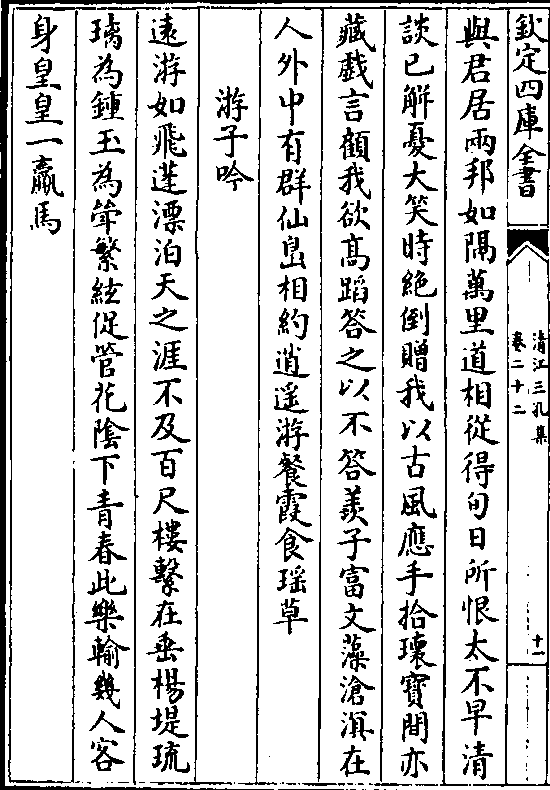 欽定四庫全書
清江三孔集
卷二十二
十一
與君居兩邦如隔萬里道相從得旬日所恨太不早清
談已解憂大笑時絶倒贈我以古風應手拾瓌寶間亦
藏戯言顧我欲髙蹈答之以不答羨子富文藻滄溟在
人外中有群仙島相約逍遥游餐霞食瑶草
游子吟
逺游如飛蓬漂泊天之涯不及百尺樓繫在垂楊堤琉
璃為鍾玉為斝繁絃促管花陰下青春此樂輸幾人客
身皇皇一羸馬